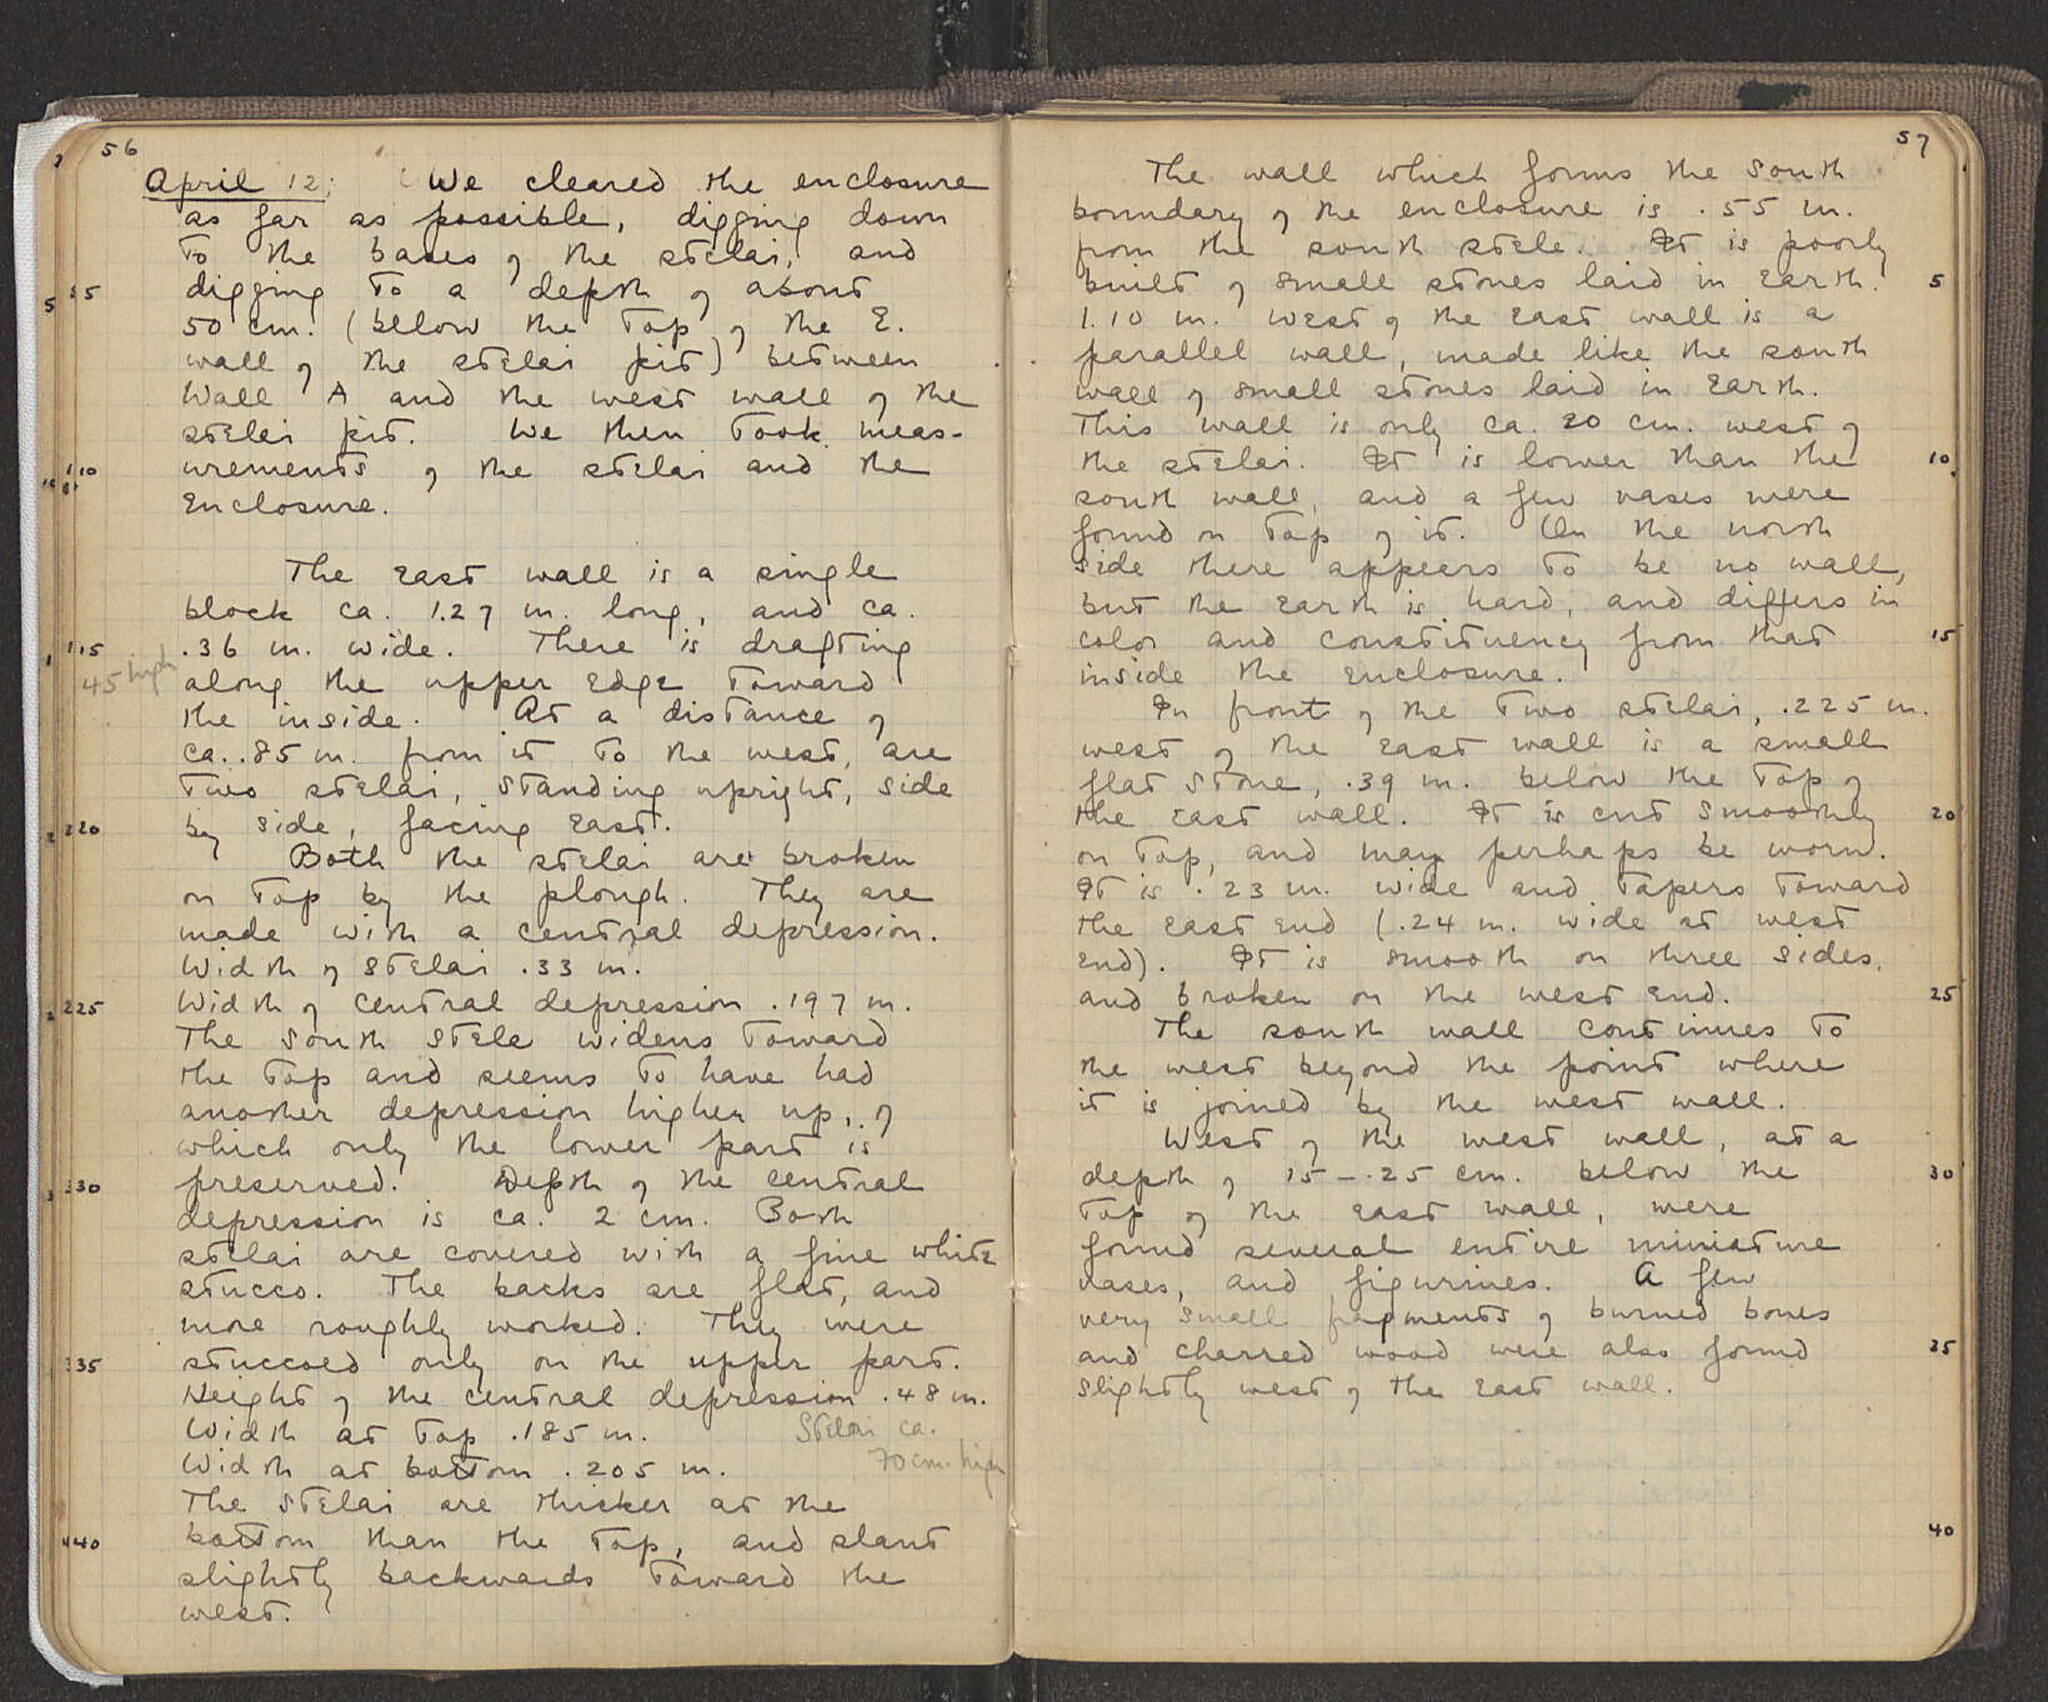 56
April 12; We cleared the enclosure
as far as possible, digging down
to the bases of the stelai, and
5 digging to a depth of about
50 cm. (below the top of the E.
wall of the stelai pit) between
Wall A and the west wall of the
stelai pit. We then took meas-
10 urements of the stelai and the
enclosure.
The east wall is a single
block ca. 1.27 m. long, and ca.
15 .36 m. wide. There is drafting
45 high along the upper edge toward
the inside. At a distance of
ca. .85 m. from it to the west, are
two stelai, standing upright, side
20 by side, facing east.
Both the stelai are broken
on top by the plough. They are
made with a central depression.
Width of stelai .33 m.
25 Width of central depression .197 m.
The south stele widens toward
the top and seems to have had
another depression higher up, of
which only the lower part is
30 preserved. Depth of the central
depression is ca. 2 cm. Both
stelai are covered with a fine white
stucco. The backs are flat, and
more roughly worked. They were
35 stuccoed only on the upper part.
Height of the central depression .48 m.
Width at top .185 m. Stelai ca.
Width at bottom .205 m. 70 cm. high
The stelai are thicker at the
40 bottom than the top, and slant
slightly backwards toward the
west.
57
The wall which forms the south
boundary of the enclosure is .55 m.
from the south stele. It is poorly
built of small stones laid in earth. 5
1.10 m. west of the east wall is a
parallel wall, made like the south
wall of small stones laid in earth.
This wall is only ca. 20 cm. west of
the stelai. It is lower than the 10
south wall, and a few vases were
found on top of it. On the north
side there appears to be no wall,
but the earth is hard, and differs in
color and constituency from that 15
inside the enclosure.
In front of the two stelai, .225 m.
west of the east wall is a small
flat stone, .39 m. below the top of
the east wall. It is cut smoothly 20
on top, and may perhaps be worn.
It is .23 m. wide and tapers toward
the east end (.24 m. wide at west
end). It is smooth on three sides,
and broken on the west end. 25
The south wall continues to
the west beyond the point where
it is joined by the west wall.
West of the west wall, at a
depth of 15 - .25 cm. below the 30
top of the east wall, were
found several entire miniature
vases, and figurines. A few
very small fragments of burned bones
and charred wood were also found 35
slightly west of the east wall.
40